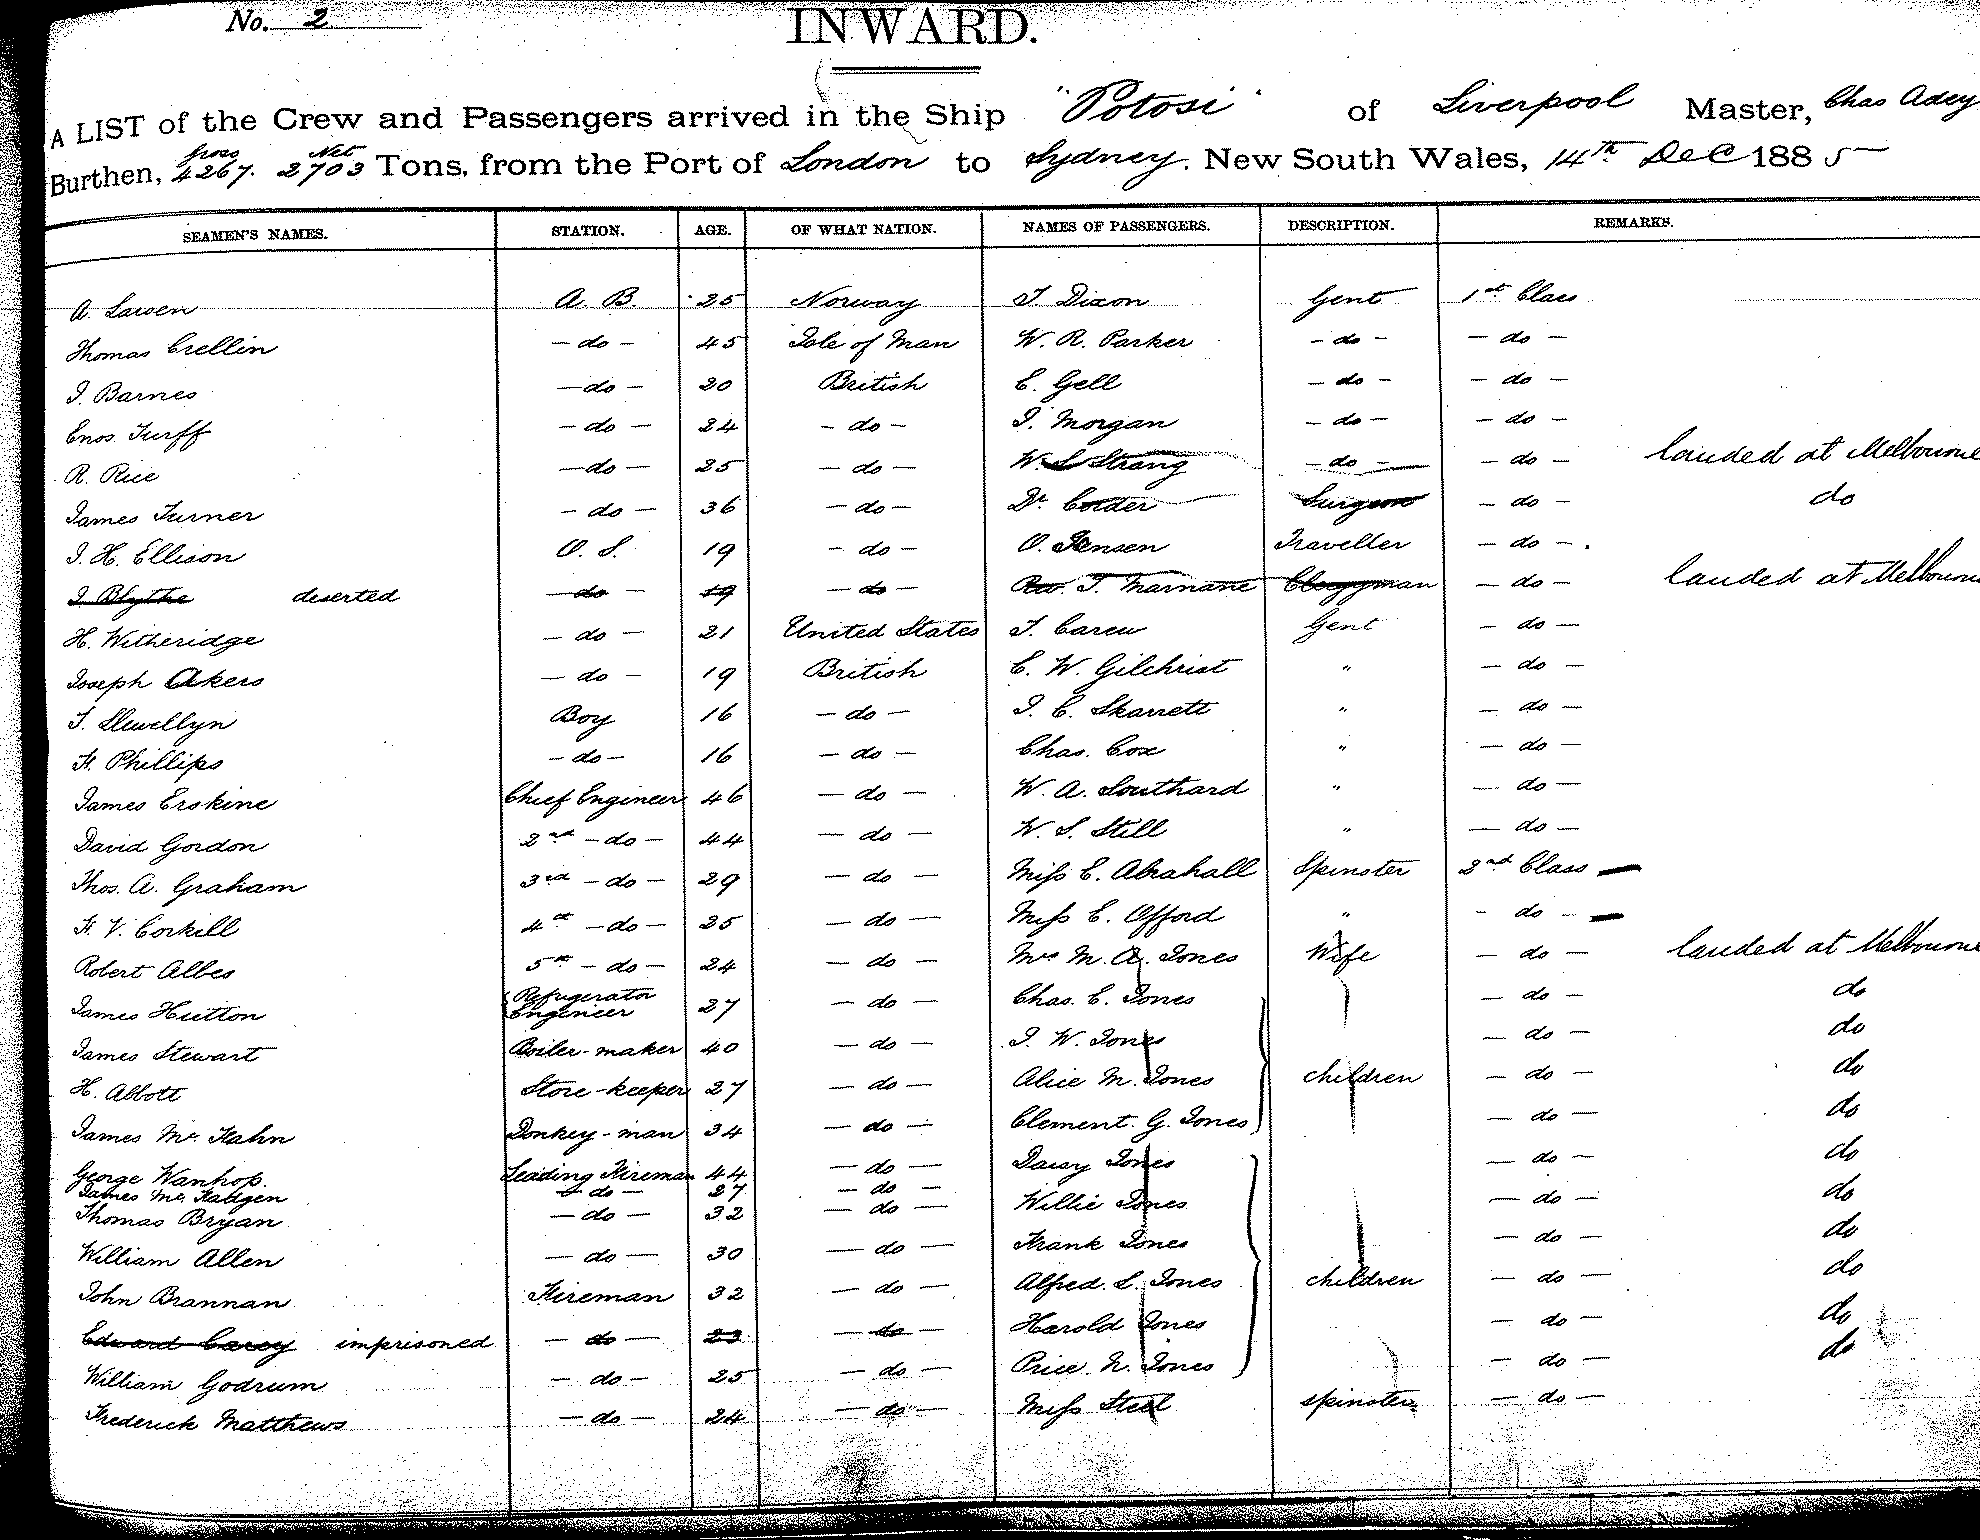 No. 2
INWARD.
A LIST of the Crew and Passengers arrived in the Ship "Potosi" of Liverpool Master, Chas Adey
Burthen, Gross 4267. Net 2703 Tons, from the Port of London to Sydney. New South Wales, 14th Dec 1885
SEAMEN'S NAMES. STATION. AGE. OF WHAT NATION. NAMES OF PASSENGERS. DESCRIPTION. REMARKS.
A. Larsen A. B. 25 Norway T. Dixon Gent 1st Class
Thomas Crellin - do - 45 Isle of Man W. R. Parker - do - - do -
J. Barnes - do - 20 British C. Gell - do - - do -
Enos Turff - do - 24 - do - J. Morgan - do - - do -
R. Rice - do - 25 - do - W. S Strang - do - - do - landed at Melbourne
James Turner - do - 36 - do - Dr. Corder Surgeon - do - do
J. H. Ellison O. S. 19 - do - O. Jensen Traveller - do -
J. Blythe deserted - do - 19 - do - Rev. T. Marnane Clergyman - do - landed at Melbourne
H. Witheridge - do - 21 United States T. Carew Gent - do -
Joseph Akers - do - 19 British C. W. Gilchrist " - do -
T. Llewellyn Boy 16 - do - J. C. Skarrett " - do -
F. Phillips - do - 16 - do - Chas. Cox " - do -
James Erskine Chief Engineer 46 - do - W. A. Southard " - do -
David Gordon 2nd - do - 44 - do - W. S. Still " - do -
Thos. A. Graham 3rd - do - 29 - do - Miss E. Abrahall Spinster 2nd Class
F. V. Corkill 4th - do - 25 - do - Miss E. Offord " - do -
Robert Albes 5th - do - 24 - do - Mrs M. A. Jones Wife - do - landed at Melbourne
James Hutton Refrigerator Engineer 27 - do - Chas. E. Jones - do - do
James Stewart Boiler-maker 40 - do - J. W. Jones - do - do
H. Abbott Store-keeper 27 - do - Alice M. Jones children - do - do
James Mc. Hahn Donkey-man 34 - do - Clement. G. Jones - do - do
George Wanhop. Leading Fireman 44 - do - Daisy Jones - do - do
James Mc - do - 27 - do -
Thomas Bryan - do - 32 - do - Willie Jones - do - do
William Allen - do - 30 - do - Frank Jones - do - do
John Brannan Fireman 32 - do - Alfred. L. Jones children - do - do
Edward Carey imprisoned - do - 23 - do - Harold Jones - do - do
William Godrum - do - 25 - do - Price. N. Jones - do - do
Frederick Matthews - do - 24 - do - Miss Steel spinster - do -